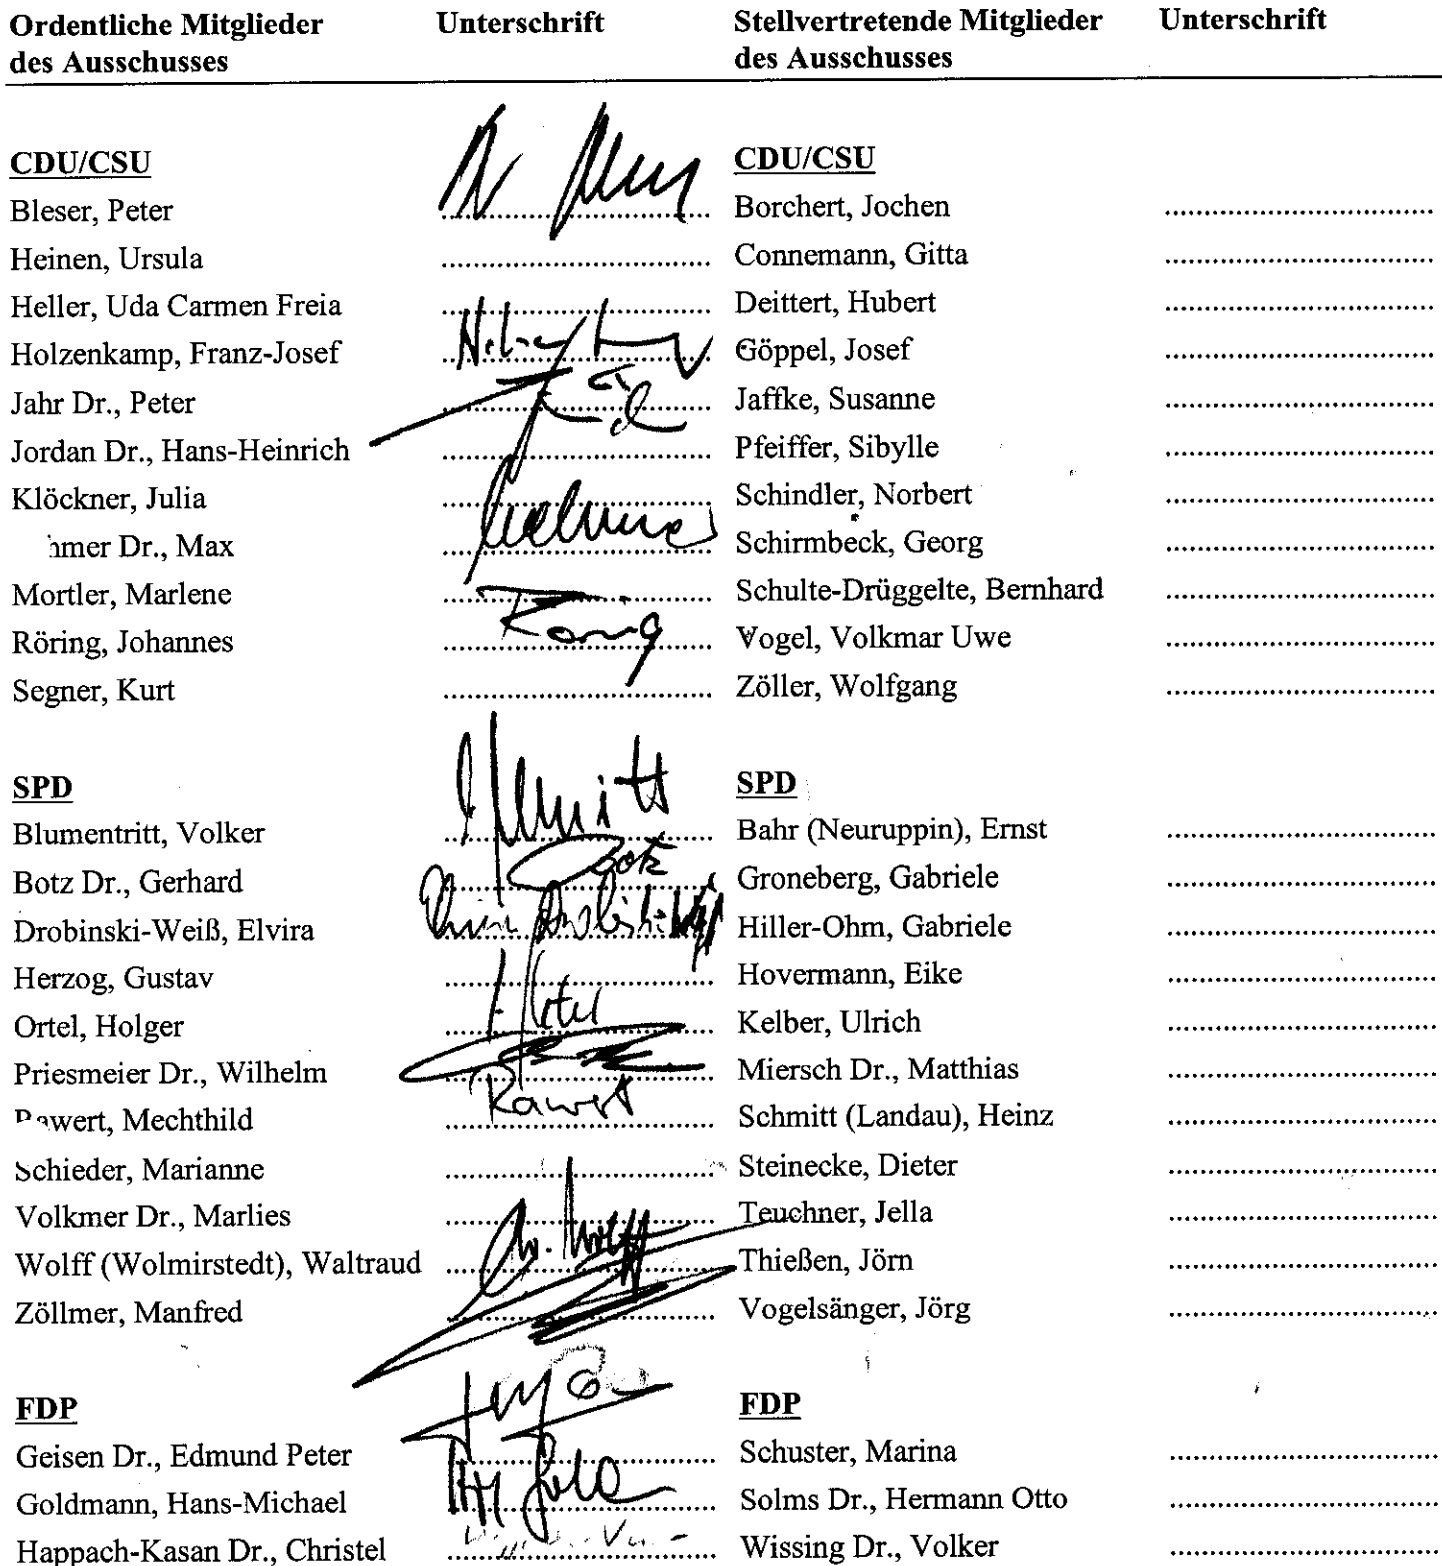 Ordentliche Mitglieder Unterschrift Stellvertretende Mitglieder Unterschrift
des Ausschusses des Ausschusses
CDU/CSU CDU/CSU
Bleser, Peter Borchert, Jochen
Heinen, Ursula Connemann, Gitta
Heller, Uda Carmen Freia Deittert, Hubert
Holzenkamp, Franz-Josef Göppel, Josef
Jahr Dr., Peter Jaffke, Susanne
Jordan Dr., Hans-Heinrich Pfeiffer, Sibylle
Klöckner, Julia Schindler, Norbert
Dr., Max Schirmbeck, Georg
Mortler, Marlene Schulte-Drüggelte, Bernhard
Röring, Johannes Röring Vogel, Volkmar Uwe
Segner, Kurt Zöller, Wolfgang
SPD SPD
Blumentritt, Volker Bahr (Neuruppin), Ernst
Botz Dr., Gerhard Botz Groneberg, Gabriele
Drobinski-Weiß, Elvira Hiller-Ohm, Gabriele
Herzog, Gustav Hovermann, Eike
Ortel, Holger Kelber, Ulrich
Priesmeier Dr., Wilhelm Miersch Dr., Matthias
Rawert, Mechthild Rawert Schmitt (Landau), Heinz
Schieder, Marianne Steinecke, Dieter
Volkmer Dr., Marlies Teuchner, Jella
Wolff (Wolmirstedt), Waltraud Thießen, Jörn
Zöllmer, Manfred Vogelsänger, Jörg
FDP FDP
Geisen Dr., Edmund Peter Schuster, Marina
Goldmann, Hans-Michael Solms Dr., Hermann Otto
Happach-Kasan Dr., Christel Wissing Dr., Volker